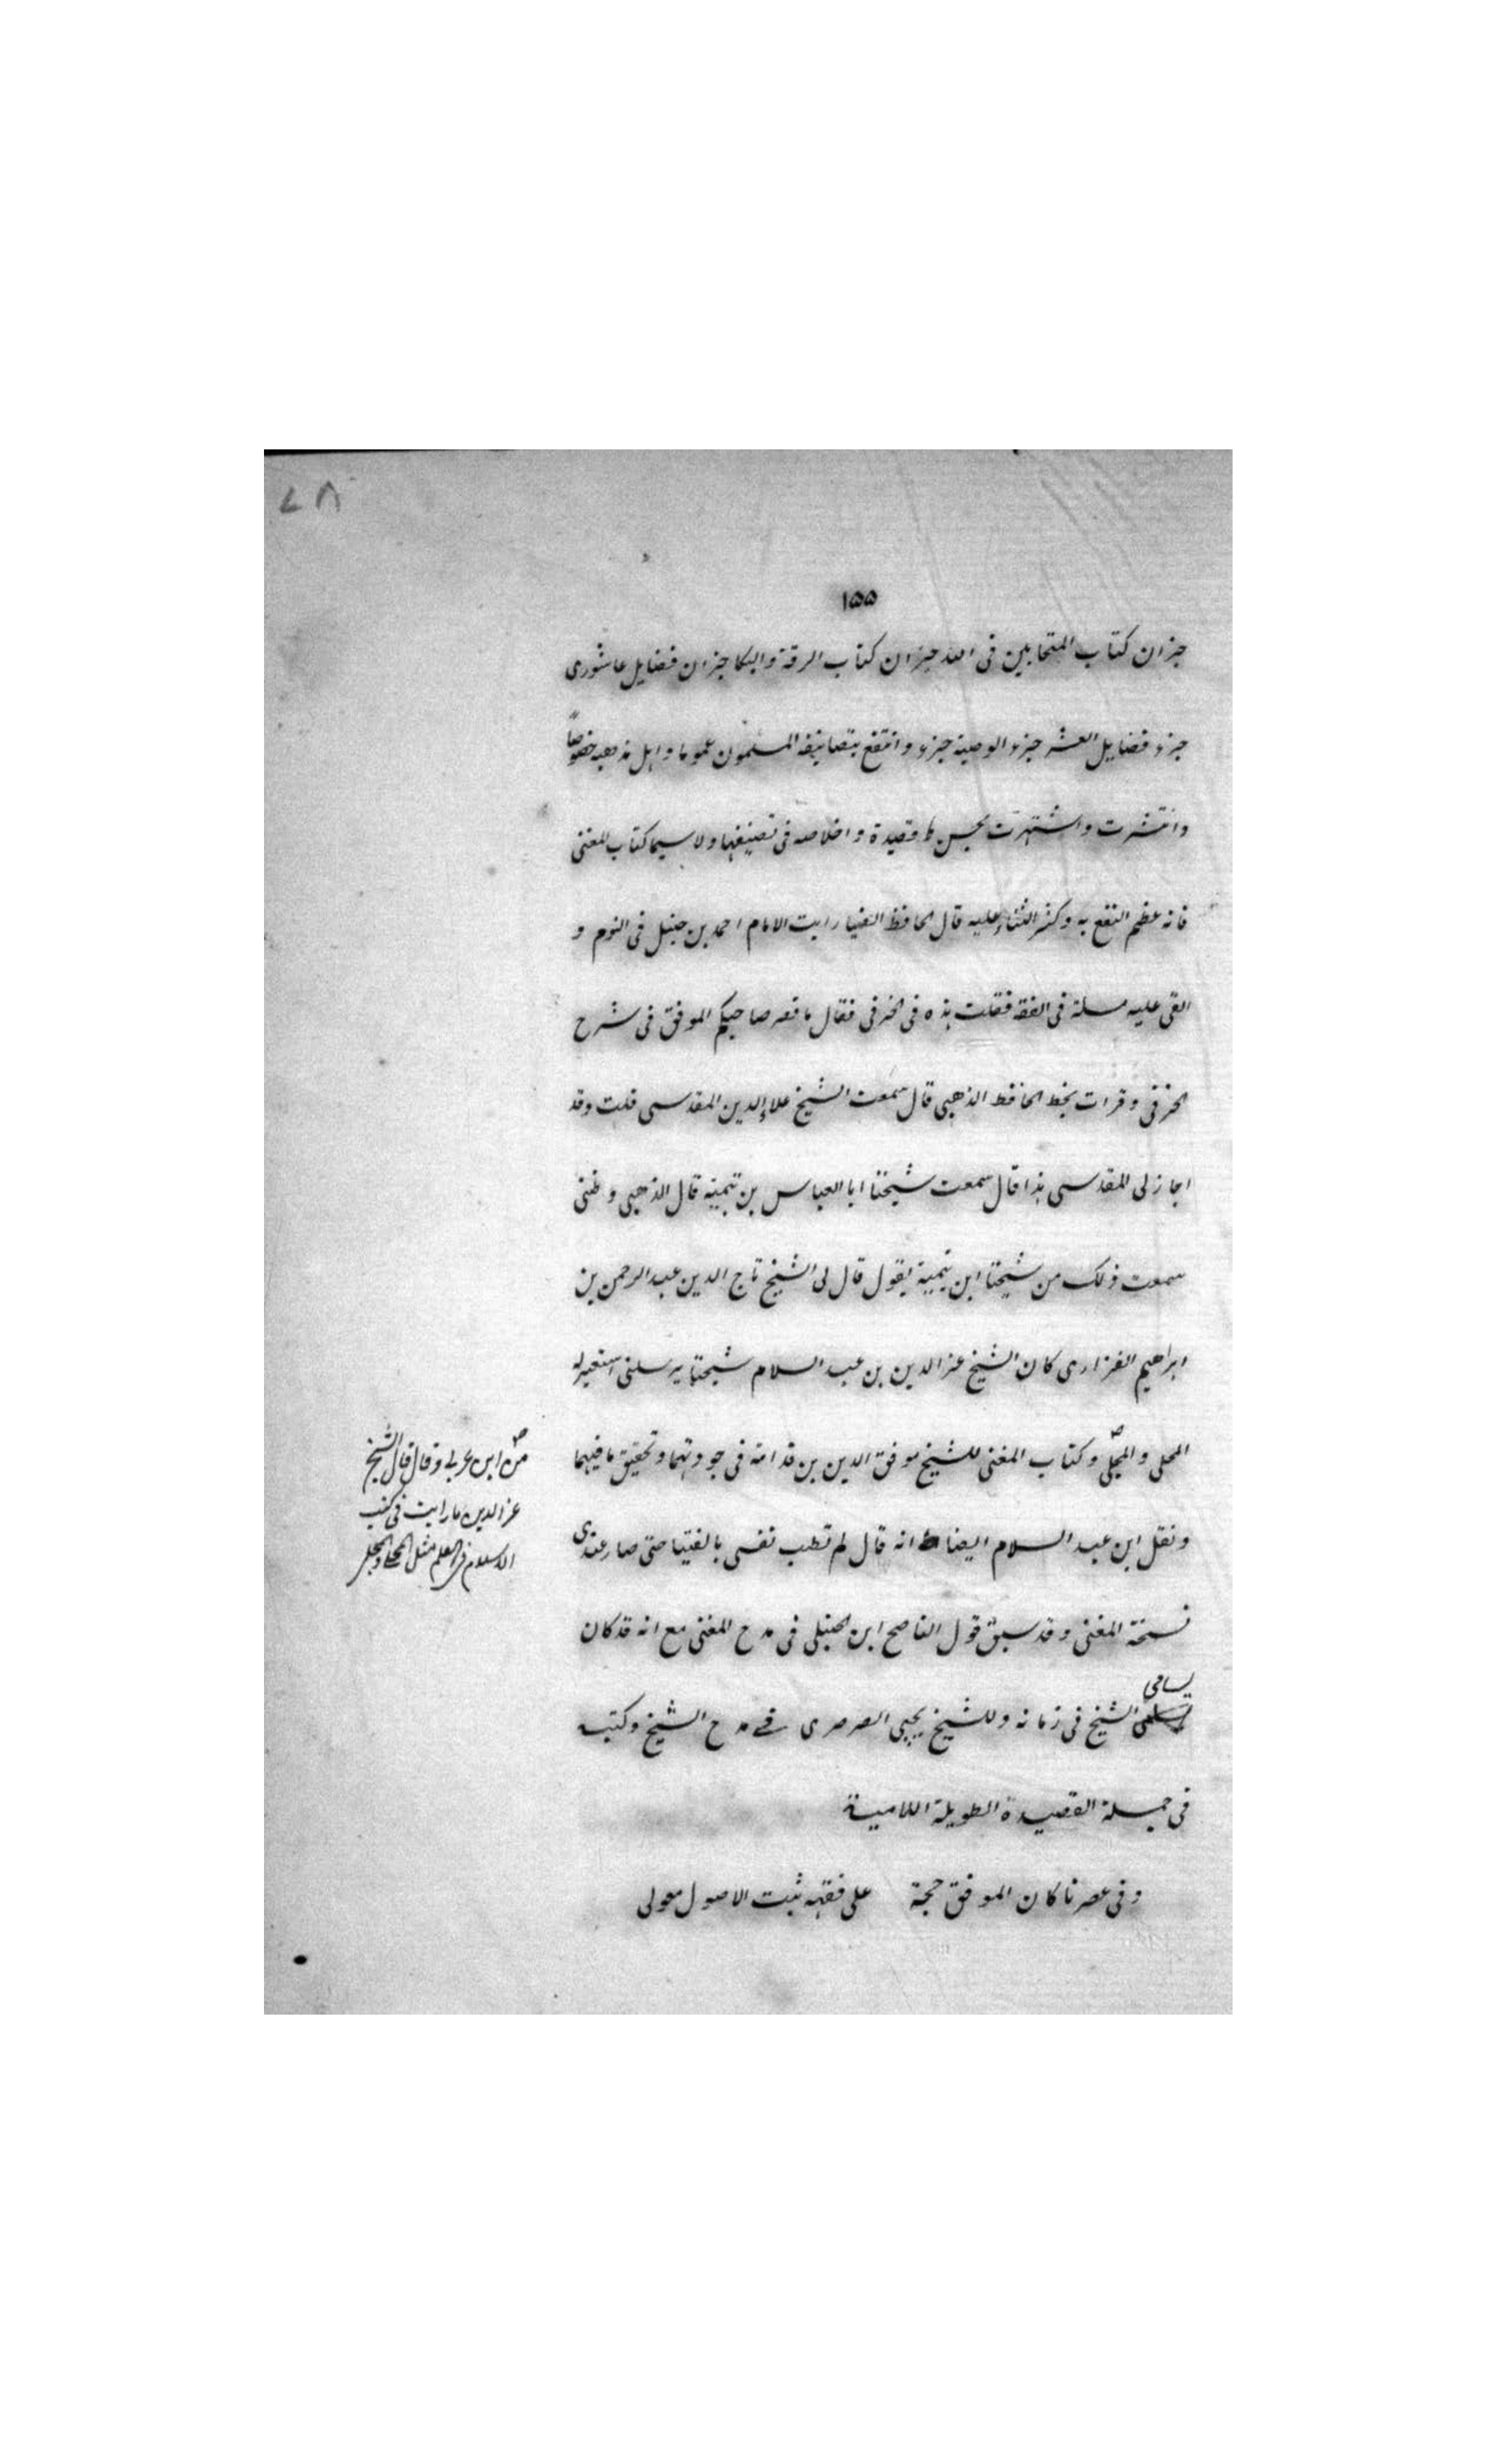 ٧٨
١٥٥
جزان كتاب المتحابين فى الله جزان كتاب الرقة والبكا جزان فضايل عاشورى
جزء فضايل العشر جزء الوصية جزء وانتفع بتصانيفه المسلمون عموما واهل مذهبه خصوصاً
وانتشرت واشتهرت بحسن قصيدة واخلاصه فى تصنيفها ولا سيما كتاب المغنى
فانه عظم النفع به وكثر الثناء عليه قال الحافظ الضيا رايت الامام احمد بن حنبل فى النوم و
القى عليه مسلة فى الفقه فقلت هذه فى الخرقى فقال ما قصر صاحبكم الموفق فى شرح
الخرقى وقرات بخط الحافظ الذهبى قال سمعت الشيخ علاء الدين المقدسى قلت وقد
اجاز لى المقدسى هذا قال سمعت شيخنا ابا العباس بن تيمية قال الذهبى وظنى
سمعت ذلك من شيخنا ابن تيمية يقول قال لى الشيخ تاج الدين عبد الرحمن بن
ابراهيم الفزارى كان الشيخ عز الدين بن عبد السلام شيخنا يرسلنى استعير له
المحلى والمجلى وكتاب المغنى للشيخ موفق الدين بن قدامة فى جودتهما وتحقيق ما فيهما
من ابن عربى وقال قال الشيخ
عز الدين ما رايت فى كتب
الاسلام فى العلم مثل المحلى والمجلى
ونقل ابن عبد السلام ايضا انه قال لم تطب نفسى بالفتيا حتى صار عندى
نسخة المغنى وقد سبق قول الناصح ابن الحنبلى فى مدح المغنى مع انه قد كان
يسامى
الشيخ فى زمانه وللشيخ يحيى الصرصرى فى مدح الشيخ وكتبه
فى جملة القصيدة الطويلة اللامية
وفى عصرنا كان الموفق حجة على فقهه ثبت الاصول معولى